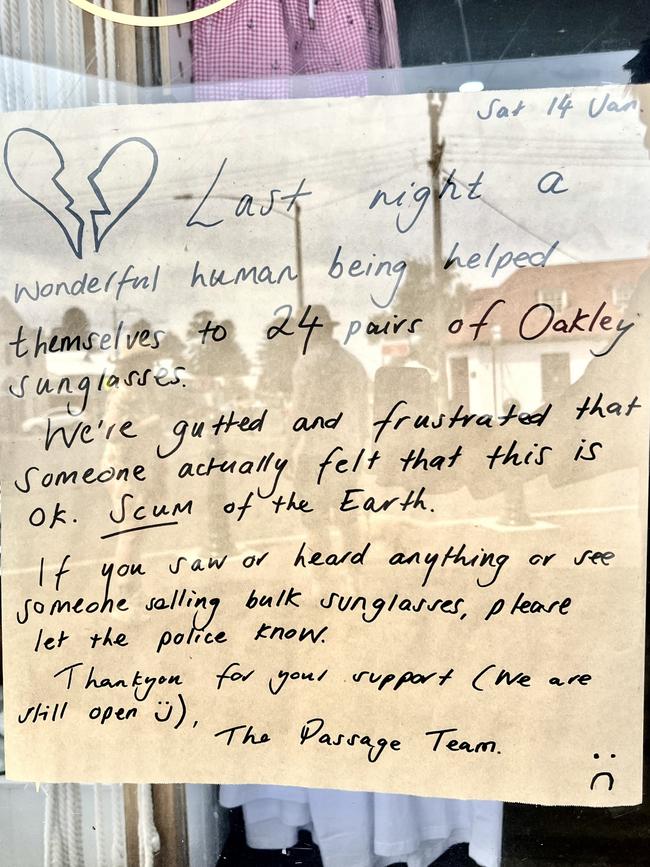 Sat 14 Jan.
Last night a
wonderful human being helped
themselves to 24 pairs of Oakley
sunglasses.
We're gutted and frustrated that
someone actually felt that this is
ok. Scum of the Earth.
If you saw or heard anything or see
someone selling bulk sunglasses, please
let the police know.
Thankyou for your support (We are
still open Ü),
The Passage Team.
:(